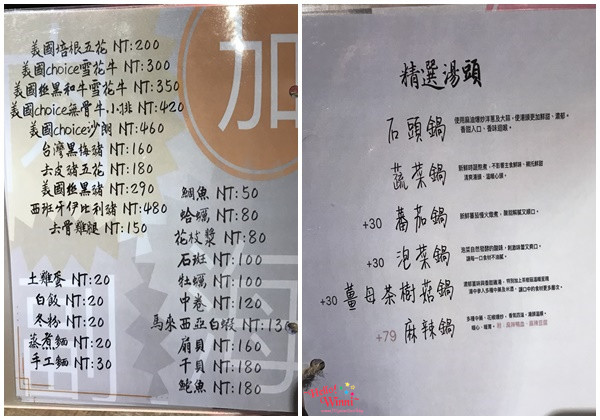 美國培根五花 NT:200
美國choice雪花牛 NT:300
美國極黑和牛雪花牛 NT:350
美國choice無骨牛小排 NT:420
美國choice沙朗 NT:460
台灣黑梅豬 NT:160
去皮豬五花 NT:180
美國極黑豬 NT:290
西班牙伊比利豬 NT:480
去骨雞腿 NT:150
土雞蛋 NT:20
白飯 NT:20
冬粉 NT:20
蒸煮麵 NT:20
手工麵 NT:30
加
海
鯛魚 NT:50
蛤蠣 NT:80
花枝漿 NT:80
石斑 NT:100
牡蠣 NT:100
中卷 NT:120
馬來西亞白蝦 NT:130
扇貝 NT:160
干貝 NT:180
鮑魚 NT:180
精選湯頭
石頭鍋
使用麻油爆炒洋蔥及大蒜，使湯頭更加鮮甜、濃郁。
香甜入口、香味迴繞。
蔬菜鍋
新鮮時蔬熬煮，不影響主食鮮味，襯托鮮甜
清爽湯頭，溫暖心頭。
+30 蕃茄鍋
新鮮蕃茄慢火燉煮，酸甜解膩又順口。
+30 泡菜鍋
泡菜自然發酵的酸味，刺激味蕾又爽口。
讓每一口食材不油膩。
+30 薑母茶樹菇鍋
+79 麻辣鍋